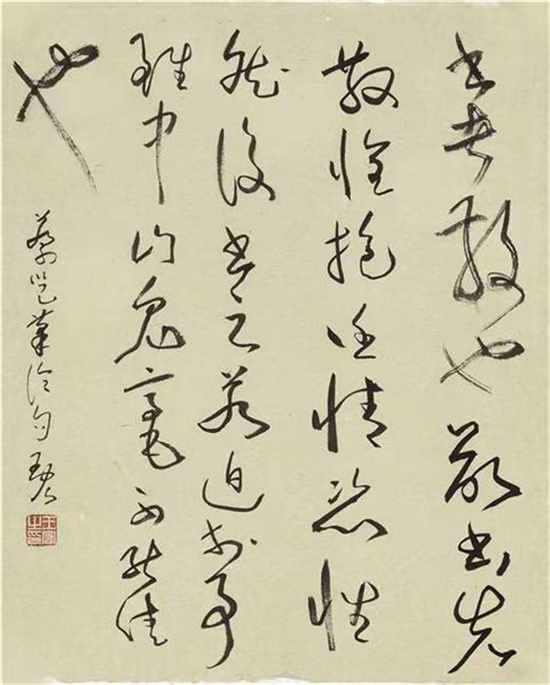 書者散也欲書先
散懷抱任情恣性
然後書之若迫於事
雖中山兔毫不能佳
也
蔡邕筆論句